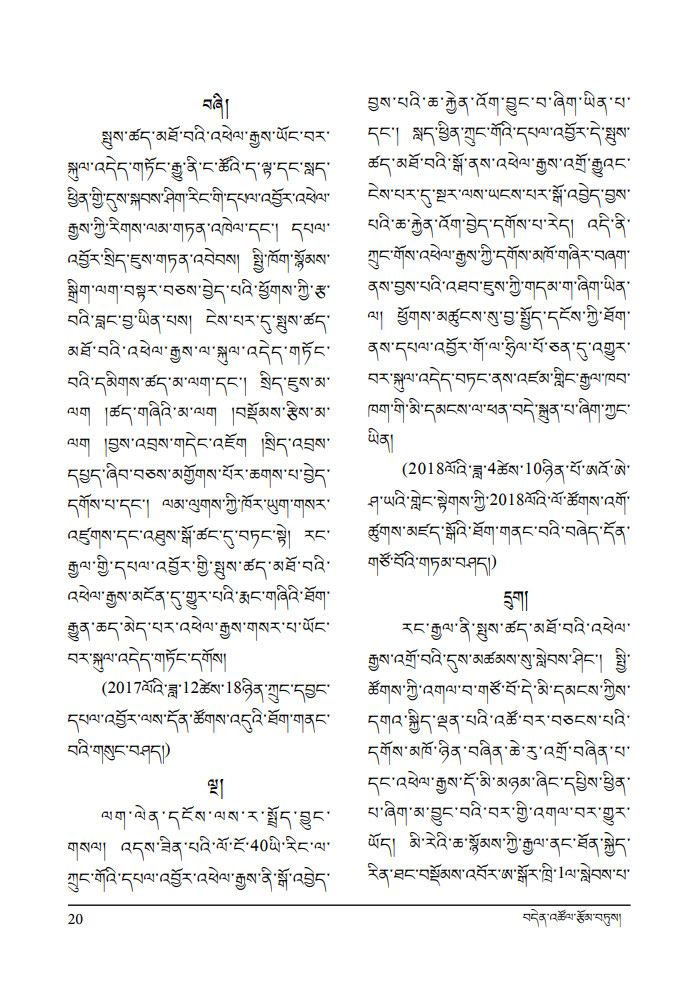 བཞི།
སྤུས་ཚད་མཐོ་བའི་འཕེལ་རྒྱས་ཡོང་བར་
སྐུལ་འདེད་གཏོང་རྒྱུ་ནི་ང་ཚོའི་ད་ལྟ་དང་སླད་
ཕྱིན་གྱི་དུས་སྐབས་ཤིག་རིང་གི་དཔལ་འབྱོར་འཕེལ་
རྒྱས་ཀྱི་རིགས་ལམ་གཏན་འཁེལ་དང་། དཔལ་
འབྱོར་སྲིད་ཇུས་གཏན་འབེབས། སྤྱི་ཁོག་སྙོམས་
སྒྲིག་ལག་བསྟར་བཅས་བྱེད་པའི་ཕྱོགས་ཀྱི་རྩ་
བའི་བླང་བྱ་ཡིན་པས། ངེས་པར་དུ་སྤུས་ཚད་
མཐོ་བའི་འཕེལ་རྒྱས་ལ་སྐུལ་འདེད་གཏོང་
བའི་དམིགས་ཚད་མ་ལག་དང་། སྲིད་ཇུས་མ་
ལག །ཚད་གཞིའི་མ་ལག །བསྡོམས་རྩིས་མ་
ལག །བྱས་འབྲས་གདེང་འཇོག །སྲིད་འབྲས་
དཔྱད་ཞིབ་བཅས་མགྱོགས་པོར་ཆགས་པ་བྱེད་
དགོས་པ་དང་། ལམ་ལུགས་ཀྱི་ཁོར་ཡུག་གསར་
འཛུགས་དང་འཐུས་སྒོ་ཚང་དུ་བཏང་སྟེ། རང་
རྒྱལ་གྱི་དཔལ་འབྱོར་གྱི་སྤུས་ཚད་མཐོ་བའི་
འཕེལ་རྒྱས་མངོན་དུ་གྱུར་པའི་རྨང་གཞིའི་ཐོག་
རྒྱུན་ཆད་མེད་པར་འཕེལ་རྒྱས་གསར་པ་ཡོང་
བར་སྐུལ་འདེད་གཏོང་དགོས།
(2017ལོའི་ཟླ་12ཚེས་18ཉིན་ཀྲུང་དབྱང་
དཔལ་འབྱོར་ལས་དོན་ཚོགས་འདུའི་ཐོག་གནང་
བའི་གསུང་བཤད།)
ལྔ།
ལག་ལེན་དངོས་ལས་ར་སྤྲོད་བྱུང་
གསལ། འདས་ཟིན་པའི་ལོ་ངོ་40ཡི་རིང་ལ་
ཀྲུང་གོའི་དཔལ་འབྱོར་འཕེལ་རྒྱས་ནི་སྒོ་འབྱེད་
བྱས་པའི་ཆ་རྐྱེན་འོག་བྱུང་བ་ཞིག་ཡིན་པ་
དང་། སླད་ཕྱིན་ཀྲུང་གོའི་དཔལ་འབྱོར་དེ་སྤུས་
ཚད་མཐོ་བའི་སྒོ་ནས་འཕེལ་རྒྱས་འགྲོ་རྒྱུའང་
ངེས་པར་དུ་སྔར་ལས་ཡངས་པར་སྒོ་འབྱེད་བྱས་
པའི་ཆ་རྐྱེན་འོག་བྱེད་དགོས་པ་རེད། འདི་ནི་
ཀྲུང་གོས་འཕེལ་རྒྱས་ཀྱི་དགོས་མཁོ་གཞིར་བཞག་
ནས་བྱས་པའི་འཐབ་ཇུས་ཀྱི་གདམ་ག་ཞིག་ཡིན་
ལ། ཕྱོགས་མཚུངས་སུ་བྱ་སྤྱོད་དངོས་ཀྱི་ཐོག་
ནས་དཔལ་འབྱོར་གོ་ལ་ཧྲིལ་པོ་ཅན་དུ་འགྱུར་
བར་སྐུལ་འདེད་བཏང་ནས་འཛམ་གླིང་རྒྱལ་ཁབ་
ཁག་གི་མི་དམངས་ལ་ཕན་བདེ་སྐྲུན་པ་ཞིག་ཀྱང་
ཡིན།
(2018ལོའི་ཟླ་4ཚེས་10ཉིན་པོ་ཨའོ་ཨེ་
ཤ་ཡའི་གླེང་སྟེགས་ཀྱི་2018ལོའི་ལོ་ཚོགས་འགོ་
ཚུགས་མཛད་སྒོའི་ཐོག་གནང་བའི་བཞེད་དོན་
གཙོ་བོའི་གཏམ་བཤད།)
དྲུག།
རང་རྒྱལ་ནི་སྤུས་ཚད་མཐོ་བའི་འཕེལ་
རྒྱས་འགྲོ་བའི་དུས་མཚམས་སུ་སླེབས་ཤིང་། སྤྱི་
ཚོགས་ཀྱི་འགལ་བ་གཙོ་བོ་དེ་མི་དམངས་ཀྱིས་
དགའ་སྐྱིད་ལྡན་པའི་འཚོ་བར་བཅངས་པའི་
དགོས་མཁོ་ཉིན་བཞིན་ཆེ་རུ་འགྲོ་བཞིན་པ་
དང་འཕེལ་རྒྱས་དོ་མི་མཉམ་ཞིང་དབྱིས་ཕྱིན་
པ་ཞིག་མ་བྱུང་བའི་བར་གྱི་འགལ་བར་གྱུར་
ཡོད། མི་རེའི་ཆ་སྙོམས་ཀྱི་རྒྱལ་ནང་ཐོན་སྐྱེད་
རིན་ཐང་བསྡོམས་འབོར་ཨ་སྒོར་ཁྲི་1ལ་སླེབས་པ་
20
བདེན་འཚོལ་རྩོམ་བཏུས།